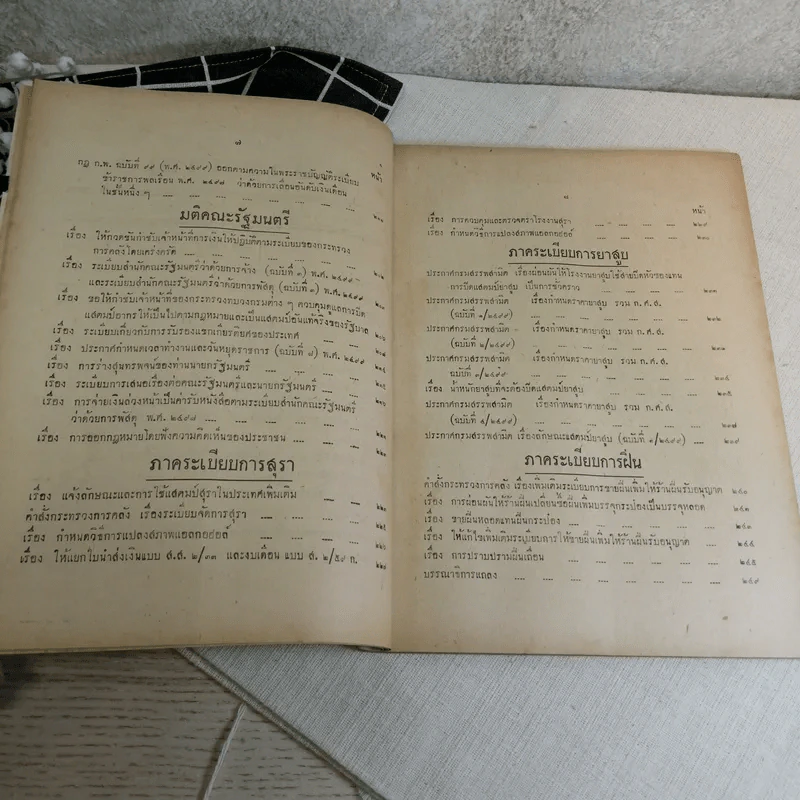 ๗
หน้า
กฎ ก.พ. ฉบับที่ ๙๙ (พ.ศ. ๒๔๙๙) ออกตามความในพระราชบัญญัติระเบียบ
ข้าราชการพลเรือน พ.ศ. ๒๔๙๗ ว่าด้วยการเลื่อนอันดับเงินเดือน
ในชั้นหนึ่ง ๆ .... .... .... .... ....
มติคณะรัฐมนตรี
เรื่อง ให้กวดขันกำชับเจ้าหน้าที่การเงินให้ปฏิบัติตามระเบียบของกระทรวง
การคลังโดยเคร่งครัด .... .... .... .... ....
เรื่อง ระเบียบสำนักคณะรัฐมนตรีว่าด้วยการจ้าง (ฉบับที่ ๓) พ.ศ. ๒๔๙๙
และระเบียบสำนักคณะรัฐมนตรีว่าด้วยการพัสดุ (ฉบับที่ ๓) พ.ศ. ๒๔๙๙
เรื่อง ขอให้กำชับเจ้าหน้าที่ของกระทรวงทบวงกรมต่าง ๆ ควบคุมดูแลการปิด
แสตมป์อากรให้เป็นไปตามกฎหมายและเป็นแสตมป์อันแท้จริงของรัฐบาล
เรื่อง ระเบียบเกี่ยวกับการรับรองแขกเกียรติยศของประเทศ ....
เรื่อง ประกาศกำหนดเวลาทำงานและวันหยุดราชการ (ฉบับที่ ๗) พ.ศ. ๒๔๙๙
เรื่อง การร่างสุนทรพจน์ของท่านนายกรัฐมนตรี .... ....
เรื่อง ระเบียบการเสนอเรื่องต่อคณะรัฐมนตรีและนายกรัฐมนตรี ....
เรื่อง การจ่ายเงินล่วงหน้าเป็นค่ารับหนังสือตามระเบียบสำนักคณะรัฐมนตรี
ว่าด้วยการพัสดุ พ.ศ. ๒๔๙๘ .... .... .... ....
เรื่อง การออกกฎหมายโดยฟังความคิดเห็นของประชาชน .... ....
ภาคระเบียบการสุรา
เรื่อง แจ้งลักษณะและการใช้แสตมป์สุราในประเทศเพิ่มเติม .... ....
คำสั่งกระทรวงการคลัง เรื่องระเบียบจัดการสุรา .... .... .... ....
เรื่อง กำหนดวิธีการแปลงสภาพแอลกอฮอล์ .... .... ....
เรื่อง ให้แยกใบนำส่งเงินแบบ ส.ส. ๒/๓๓ และงบเดือน แบบ ส. ๒/๕๙ ก.
๘
หน้า
เรื่อง การควบคุมและตรวจตราโรงงานสุรา .... .... .... .... ๒๒๙
เรื่อง กำหนดวิธีการแปลงสภาพแอลกอฮอล์ .... .... .... .... ๒๓๐
ภาคระเบียบการยาสูบ
ประกาศกรมสรรพสามิต เรื่องผ่อนผันให้โรงงานยาสูบใช้สายปิดหัวซองแทน
การปิดแสตมป์ยาสูบ เป็นการชั่วคราว .... .... .... .... ๒๓๓
ประกาศกรมสรรพสามิต เรื่องกำหนดราคายาสูบ รวม ก.ศ.ส.
(ฉบับที่ ๑/๒๔๙๙) .... .... .... .... .... ๒๓๒
ประกาศกรมสรรพสามิต เรื่องกำหนดราคายาสูบ รวม ก.ศ.ส.
(ฉบับที่ ๒/๒๔๙๙) .... .... .... .... ....
ประกาศกรมสรรพสามิต เรื่องกำหนดราคายาสูบ รวม ก.ศ.ส.
ฉบับที่ ๓/๒๔๙๙ .... .... .... .... .... ๒๓๔
เรื่อง น้ำหนักยาสูบที่จะต้องปิดแสตมป์ยาสูบ .... .... .... ๒๓๕
ประกาศกรมสรรพสามิต เรื่องกำหนดราคายาสูบ รวม ก.ศ.ส.
(ฉบับที่ ๔/๒๔๙๙) .... .... .... .... .... ๒๓๗
ประกาศกรมสรรพสามิต เรื่องลักษณะแสตมป์ยาสูบ (ฉบับที่ ๑/๒๔๙๙) .... ๒๓๙
ภาคระเบียบการฝิ่น
คำสั่งกระทรวงการคลัง เรื่องเพิ่มเติมระเบียบการขายฝิ่นเพิ่มให้ร้านฝิ่นรับอนุญาต ๒๔๑
เรื่อง การผ่อนผันให้ร้านฝิ่นเปลี่ยนซื้อฝิ่นเพิ่มบรรจุกระป๋องเป็นบรรจุหลอด ๒๔๓
เรื่อง ขายฝิ่นหลอดแทนฝิ่นกระป๋อง .... .... .... .... ๒๔๓
เรื่อง ให้แก้ไขเพิ่มเติมระเบียบการให้ขายฝิ่นเพิ่มให้ร้านฝิ่นรับอนุญาต .... ๒๔๔
เรื่อง การปราบปรามฝิ่นเถื่อน .... .... .... .... .... ๒๔๕
บรรณาธิการแถลง .... .... .... .... .... .... ๒๔๙